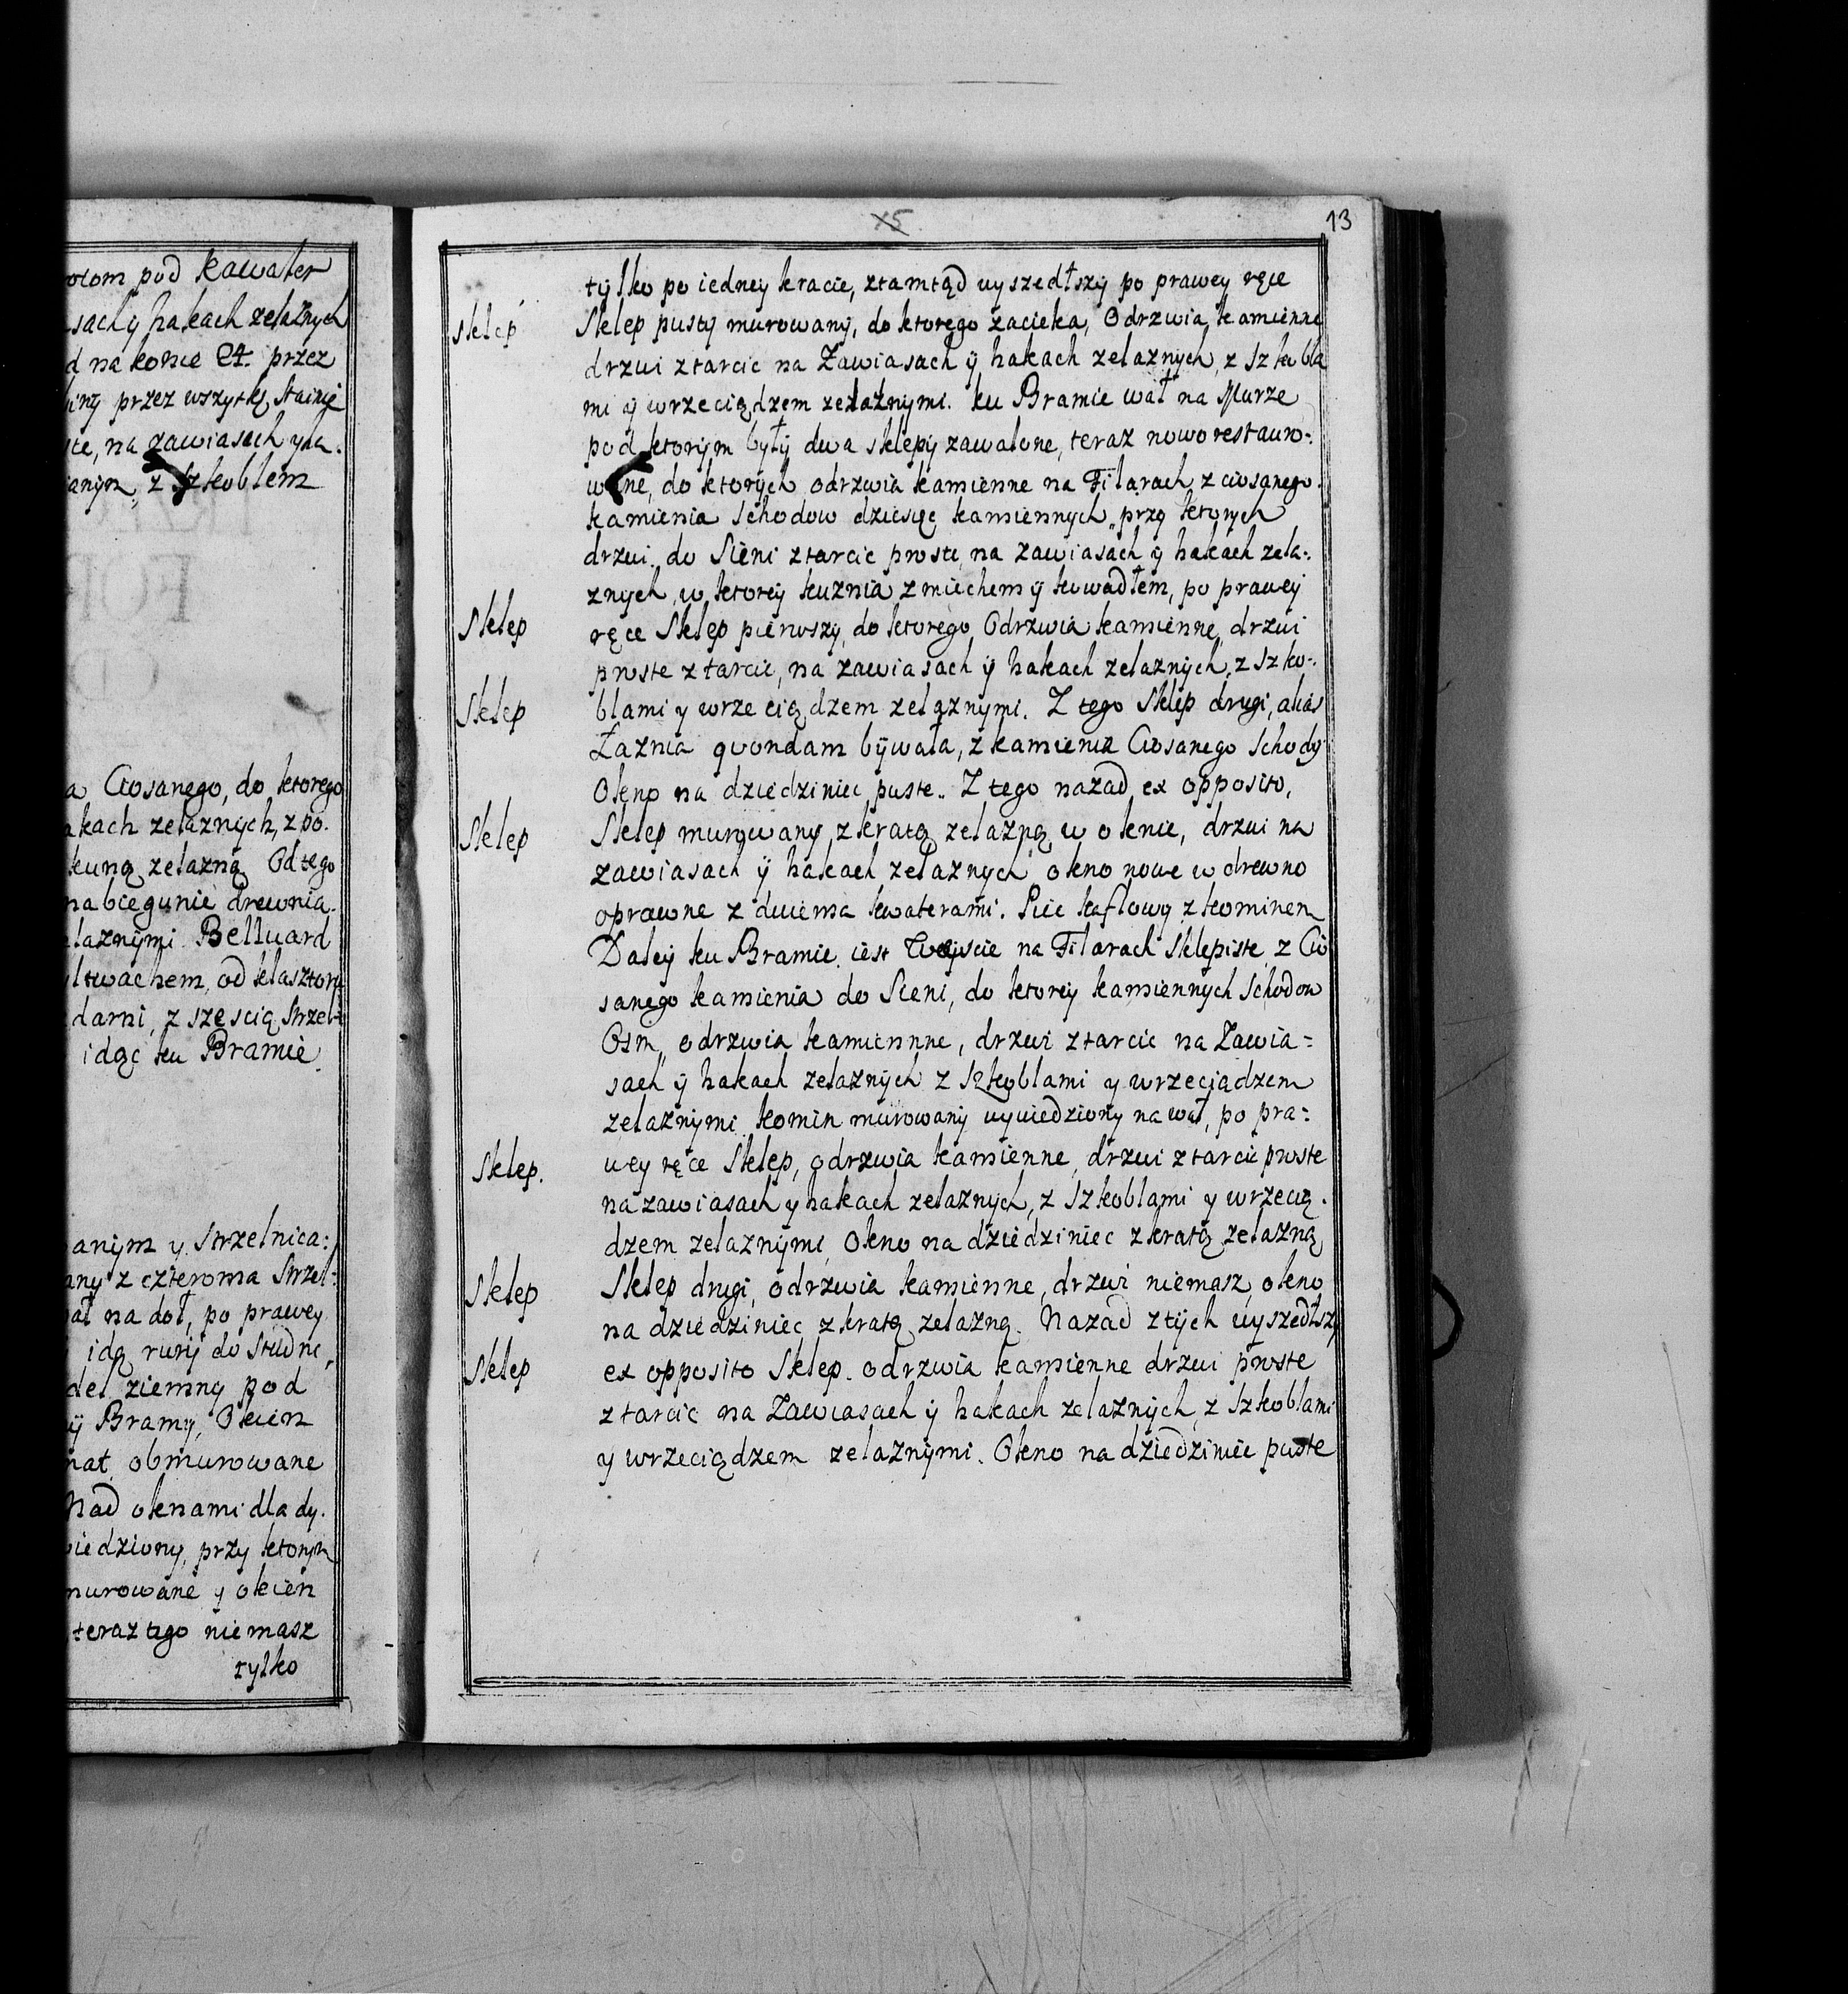 rotom pod Kawaler
sach y hakach zelaznych
d na konie 24. przez
przez wszytkę Stainię
ste, na zawiasach yha.
ianym, z Szkoblem
a Ciosanego, do ktorego
akach zelaznych, z po.
kuną zelazną Od tego
na biegunie drewnia.
elaznymi Belluard
ltwachem, od klasztoru
darni, z szescią Strzel:
idąc ku Bramie.
anym y Strzelnica:
any z czterema Strzel:
ał na doł, po prawey
idą rury do Studni,
del ziemny pod
ÿ Bramy, Okien
nat obmurowane
Nad oknami dla dy.
iedziony, przy ktorym
murowane y okien
teraz tego niemasz
tylko
15
13
tylko po iedney kracie, ztamtąd wyszedłszy po prawey ręce
Sklep
Sklep pusty murowany, do ktorego zacieka, Odrzwia kamienne
drzwi ztarcic na Zawiasach ÿ hakach zelaznych, z Szkobla
mi ÿ wrzeciądzem zelaznymi. ku Bramie wał na Murze
pod ktorym były dwa sklepy zawalone, teraz nowo restauro-:
wane, do ktorych odrzwia kamienne na Filarach z ciosanego
kamienia Schodow dziesięc kamiennych, przy ktorych
drzwi do Sieni ztarcic proste, na zawiasach ÿ hakach zela:.
znych, w ktorey kuznia z miechem ÿ kowadłem, po prawey
Sklep
ręce Sklep pierwszy, do ktorego Odrzwia kamienne, drzwi
proste z tarcic, na zawiasach ÿ hakach zelaznych, z Szko-:
Sklep
blami y wrzeciądzem zelaznymi. Z tego Sklep drugi, alias
Łaznia quondam bywała, z kamienia Ciosanego Schody
Okno na dziedziniec puste. Z tego nazad ex opposito,
Sklep
Sklep murowany, z kratą zelazną w oknie, drzwi na
zawiasach ÿ hakach zelaznych okno nowe w drewno
oprawne z dwiema kwaterami. Piec kaflowy z kominem
Daley ku Bramie iest Weyscie na Filarach Sklepiste z Cio
sanego kamienia do Sieni, do ktorey kamiennych Schodow
Osm, odrzwia kamiennne, drzwi ztarcic na Zawia=
sach ÿ hakach zelaznych z Szkoblami y wrzeciądzem
zelaznymi komin murowany wywiedziony na wał, po pra:
Sklep.
wey ręce Sklep, odrzwia kamienne, drzwi ztarcic proste
na zawiasach y hakach zelaznych, z Szkoblami y wrzecią.
dzem zelaznymi, Okno na dziedziniec z kratą zelazną
Sklep
Sklep drugi, odrzwia kamienne, drzwi niemasz, okno
na dziedziniec z kratą zelazną. Nazad z tych wyszedłszy
Sklep
ex opposito Sklep. odrzwia kamienne drzwi proste
ztarcic na Zawiasach ÿ hakach zelaznych, z Szkoblami
y wrzeciądzem zelaznymi. Okno na dziedziniec puste